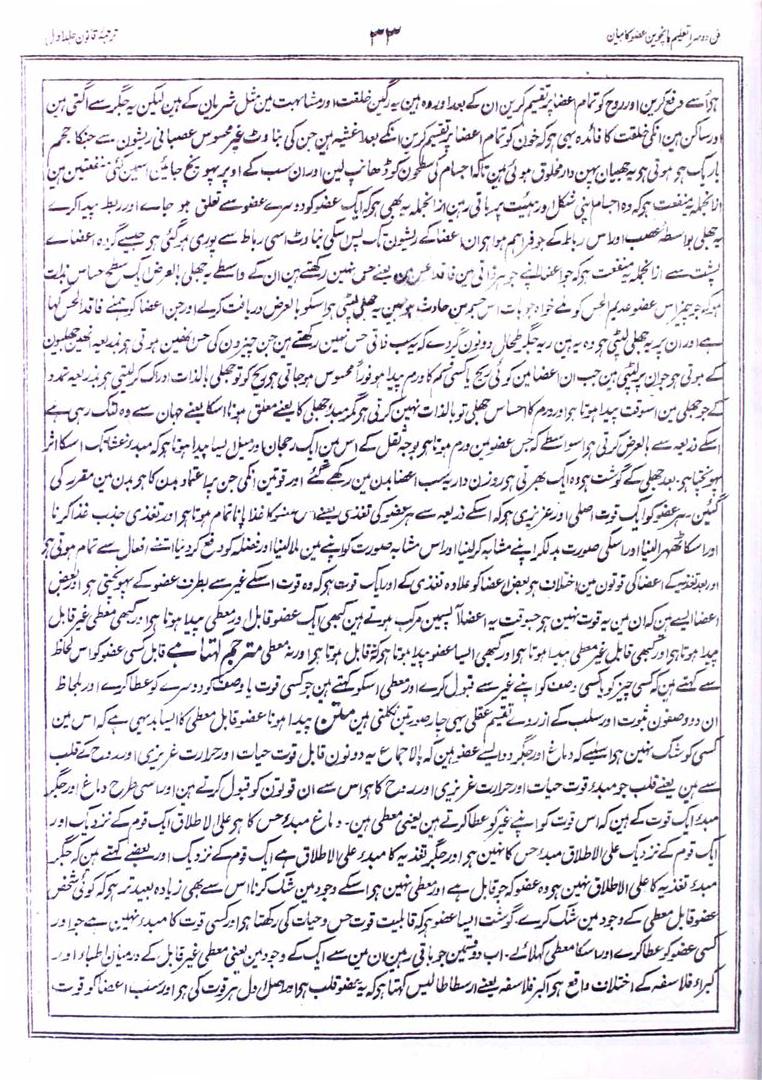 فن دوسرا تعلیم پانچوین عضو کا بیان
۳۳
ترجمۂ قانون جلد اول
ہوا سے دفع کرین اور روح کو تمام اعضا پر تقسیم کرین ان کے بعد اوردہ ہین یہ رگین خلقت اور مشابہت مین مثل شریان کے ہین لیکن یہ جگر سے اگتی ہین
اور ساکن ہین انکی خلقت کا فائدہ یہی ہو کہ خون کو تمام اعضا پر تقسیم کرین انکے بعد اغشیہ ہین جن کی بناوٹ غیر محسوس عصبانی ریشون سے جنکا حجم
باریک ہو ہوتی ہو یہ جھلیان پہین دار مخلوق ہوئی ہین تاکہ اجسام کی سطحون کو ڈھانپ لین اور ان سب کے اوپر پہونچ جائین اسمین کئی منفعتین ہین
ازانجملہ یہ منفعت ہو کہ وہ اجسام اپنی شکل اور ہیئت پر باقی رہین ازانجملہ یہ بھی ہو کہ ایک عضو کو دوسرے عضو سے تعلق ہو جاے اور ربط پیدا کرے
یہ جھلی بواسطہ عصب اور اس رباط کے جو فراہم ہوا ہو ان اعضا کے ریشون تک پس اسکی بناوٹ اسی رباط سے پوری ہو گئی ہو جیسے گردہ اعضاے
پشت سے ازانجملہ یہ منفعت ہو کہ جو اعضا اپنے جوہر ذاتی مین فاقد حس ہین یعنے حس نہین رکھتے ہین ان کے واسطے یہ جھلی بالعرض ایک سطح حساس بذات
ہو کہ جو چیز اس عضو عدیم الحس کو ملے خواہ جو بات اس جسم مین حادث ہو جسپر یہ جھلی لپٹی ہوا سکو بالعرض دریافت کرلے اور جن اعضا کو ہمنے فاقد الحس کہا
ہے اور ان پر یہ جھلی لپٹی ہو وہ یہ ہین ریہ جگر طحال دونون گردے کہ یہ سب ذاتی حس نہین رکھتے ہین جن چیزون کی حس انھین ہوتی ہو بذریعہ انھین جھلیون
کے ہوتی ہو جو ان پر لپٹی ہین جب ان اعضا مین کوئی ریح یا کسی قسم کا ورم پیدا ہو فوراً محسوس ہو جاتی ہو ریح کو تو جھلی بالذات ادراک کر لیتی ہو بذریعہ تمدد
کے جو جھلی مین اسوقت پیدا ہوتا ہو اور ورم کا احساس جھلی تو بالذات نہین کرتی ہو مگر مبدء جھلی کا یعنے معلق ہونا اسکا یعنے جہان سے وہ لٹک رہی ہے
اسکے ذریعہ سے بالعرض کرتی ہو اسواسطے کہ جس عضو مین ورم ہوتا ہو بوجہ ثقل کے اس مین ایک رجحان اور میل ایسا پیدا ہوتا ہو کہ مبدء غشا تک اسکا اثر
پہونچتا ہو۔ بعد جھلی کے گوشت ہو وہ ایک بھرتی ہو روزن دار یہ سب اعضا بدن مین رکھے گئے اور قوتین انکی جن پر اعتماد بدن کا ہو بدن مین مقرر کی
گئین۔ ہر عضو کو ایک قوت اصلی اور عزیزی ہو کہ اسکے ذریعہ سے ہر عضو کی تغذی یعنے اس عضو کا غذا پانا تمام ہوتا ہو اور تغذی جذب غذا کرنا
اور اسکا ٹھہرا لینا اور اسکی صورت بدلکر اپنے مشابہ کر لینا اور اس مشابہ صورت کو اپنے مین ملا لینا اور فضلہ کو دفع کر دینا اتنے افعال سے تمام ہوتی ہو
اور بعد تغذیہ کے اعضا کی قوتون مین اختلاف ہو بعض اعضا کو علاوہ تغذی کے اور ایک قوت ہو کہ وہ قوت اسکے غیر سے بطرف عضو کے پہونچتی ہو اور بعض
اعضا ایسے ہین کہ ان مین یہ قوت نہین ہو جسوقت یہ اعضا آپسمین مرکب ہوتے ہین کبھی ایک عضو قابل اور معطی پیدا ہوتا ہو اور کبھی معطی غیر قابل
پیدا ہوتا ہو اور کبھی قابل غیر معطی پیدا ہوتا ہو اور کبھی ایسا عضو پیدا ہوتا ہو کہ نہ قابل ہوتا ہو اور نہ معطی مترجم کہتا ہے قابل کسی عضو کو اس لحاظ
سے کہتے ہین کہ کسی چیز کو یا کسی وصف کو اپنے غیر سے قبول کرے اور معطی اسکو کہتے ہین جو کسی قوت یا وصف کو دوسرے کو عطا کرے اور بلحاظ
ان دو وصفون ثبوت اور سلب کے از روے تقسیم عقلی یہی چار صورتین نکلتی ہین متن پیدا ہونا عضو قابل معطی کا ایسا بدیہی ہے کہ اس مین
کسی کو شک نہین ہوا سلیے کہ دماغ اور جگر دو ایسے عضو ہین کہ بالاجماع یہ دونون قابل قوت حیات اور حرارت غریزی اور روح کے قلب
سے ہین یعنے قلب جو مبدء قوت حیات اور حرارت غریزی اور روح کا ہو اس سے ان قوتون کو قبول کرتے ہین اور اسی طرح دماغ اور جگر
مبدء ایک قوت کے ہین کہ اس قوت کو اپنے غیر کو عطا کرتے ہین یعنی معطی ہین۔ دماغ مبدء حس کا ہو علی الاطلاق ایک قوم کے نزدیک اور
ایک قوم کے نزدیک علی الاطلاق مبدء حس کا نہین ہو اور جگر تغذیہ کا مبدء علی الاطلاق ہے ایک قوم کے نزدیک اور بعضے کہتے ہین کہ جگر
مبدء تغذیہ کا علی الاطلاق نہین ہو وہ عضو کہ جو قابل ہے اور معطی نہین ہوا سکے وجود مین شک کرنا اس سے بھی زیادہ بعید تر ہو کہ کوئی شخص
عضو قابل معطی کے وجود مین شک کرے۔ گوشت ایسا عضو ہو کہ قابلیت قوت حس و حیات کی رکھتا ہو اور کسی قوت کا مبدء نہین ہے جو اور
کسی عضو کو عطا کرے اور اسکا معطی کہلائے۔ اب دو قسمین جو باقی رہین ان مین سے ایک کے وجود مین یعنی معطی غیر قابل کے درمیان اطباء اور
کبراء فلاسفہ کے اختلاف واقع ہوا کبر فلاسفہ یعنے ارسطاطالیس کہتا ہو کہ یہ عضو قلب ہو اور اصل اول ہر قوت کی ہو اور سب اعضا کو قوت